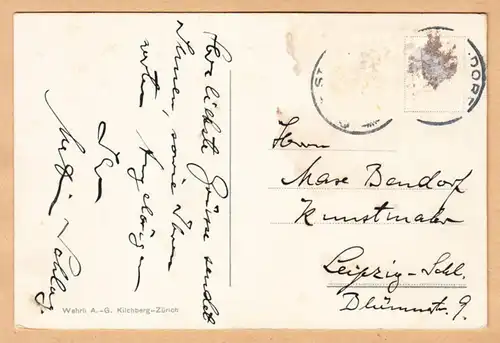 Herzlichste Grüsse sendet
Ihnen, sowie Ihren
werten Angehörigen
Ihr
Wehrli A.-G. Kilchberg-Zürich
Herrn
Max Bendorf
Kunstmaler
Leipzig-Schl.
Blümnerstr. 9.
DORF